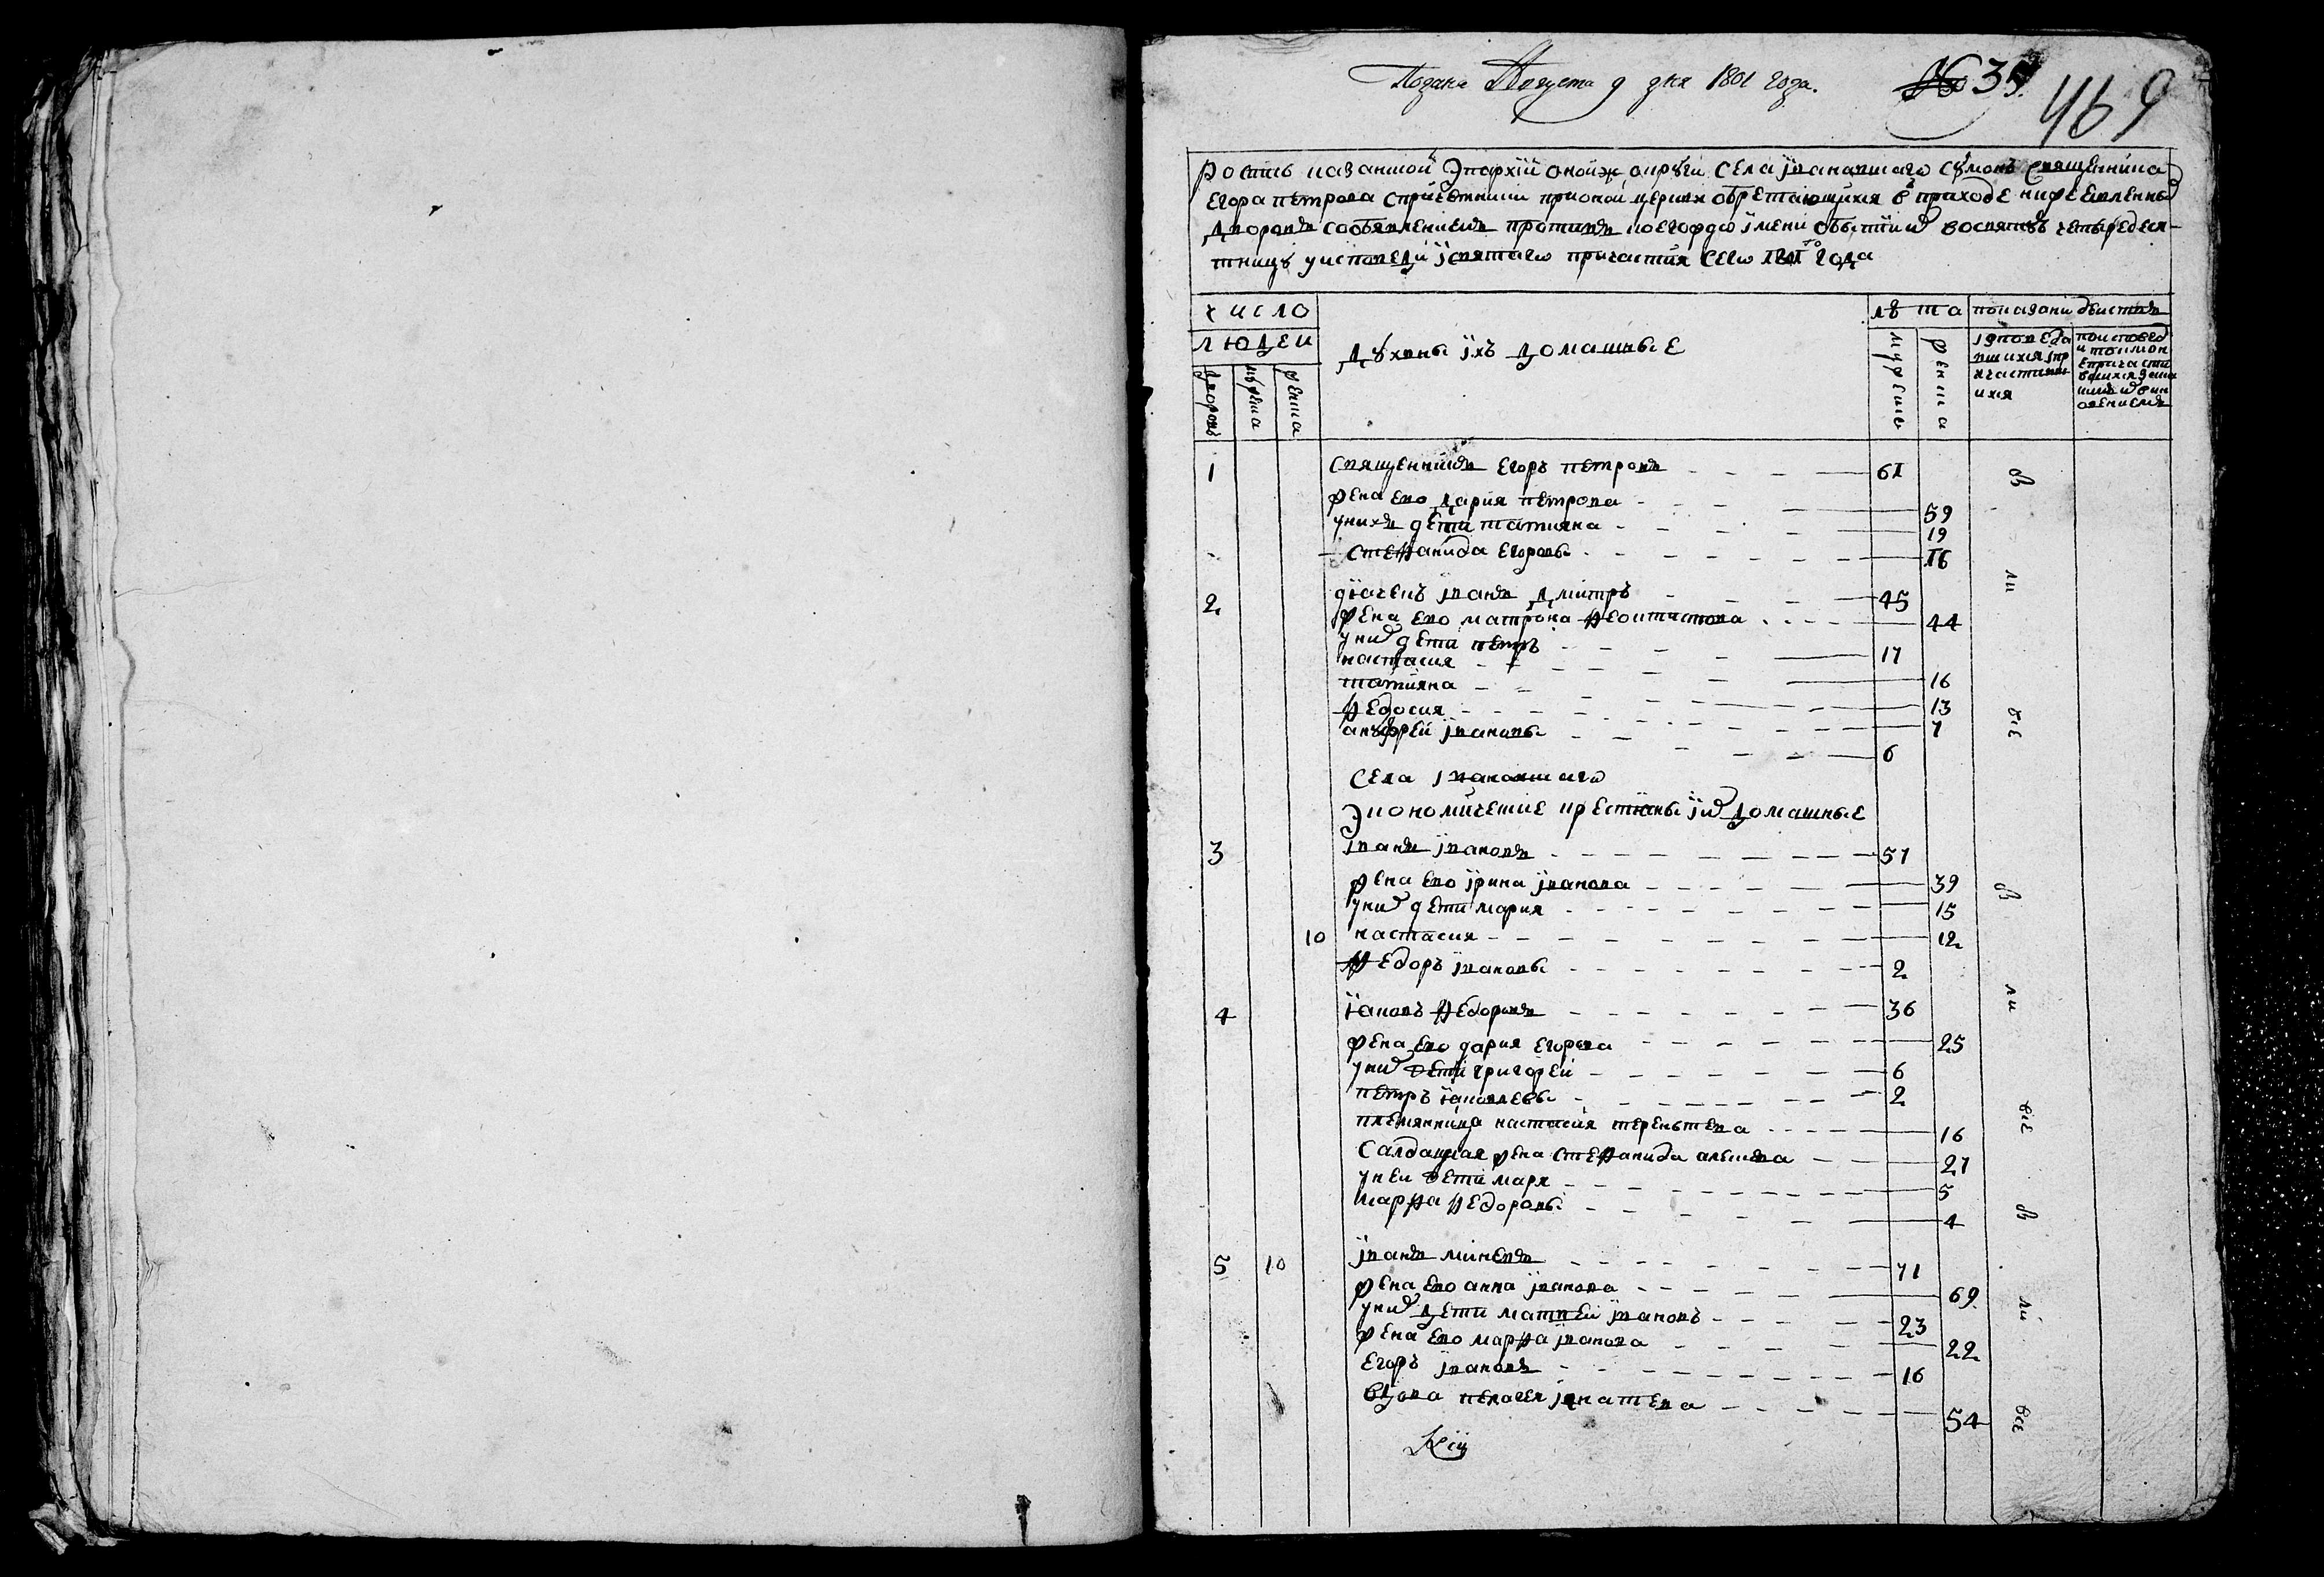 Подана Августа 9 дня 1801 года. № 35.
469
Роспись казанской Эпархии оной ж округи Села Ивановскаго Священника
Егора петрова с причетники при оной церкви обретающихся в приходе нижеявленных
дворовъ со объявлениемъ противъ коегождо имени о бытии их во святую четыредеся-
тницу у исповеди и святаго причастия сего 1801го года
число
людей
дворовъ
мужеска
женска
духовныя ихъ домашныя
лѣта
мужеск
женска
показани бытия
исповеда
вшихся и при
частивш
ихся
по исповед
и токмо н
е причасти
вшихся
1 Священникъ Егоръ петровъ 61
жена ево дария петрова 59
у нихъ дети татияна 19
стефанида Егоровы 16
2 дьячекъ Иванъ дмитр 45
жена ево матрона феоктистова 44
у них дети петръ 17
настасия 16
татияна 13
федосия 7
анъдрей ивановы 6
Села Ивановскаго
Экономические крестьяны и их домашныя
3 Иванъ Ивановъ 51
жена ево ирина иванова 39
у них дети мария 15
10 настасия 12
Федоръ ивановы 2
4 Яковъ Федоровъ 36
жена ево дария Егорова 25
у них дети григорей 6
петръ яковлевы 2
племянница настасия терентева 16
Салдацкая жена стефанида алексева 27
у неи дети маря 5
марфа федоровы 4
5 10 Иванъ минеевъ 71
жена ево анна иванова 69
у них дети матвей ивановъ 23
жена ево марфа иванова 22
Егоръ ивановъ 16
вдова пелагея игнатева 54
в
ли
все
в
ли
все
в
ли
все